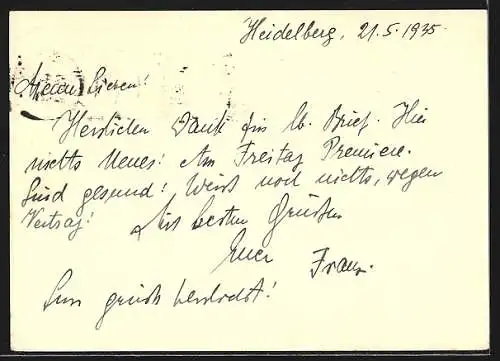 Heidelberg, 21.5.1935
Meine Lieben!
Herzlichen Dank für lb. Brief. Hier
nichts Neues! Am Freitag Premiere.
Sind gesund! Weiß noch nichts, wegen
Vertrag! Mit besten Grüßen
Euer Franz.
grüßt herzlichst!